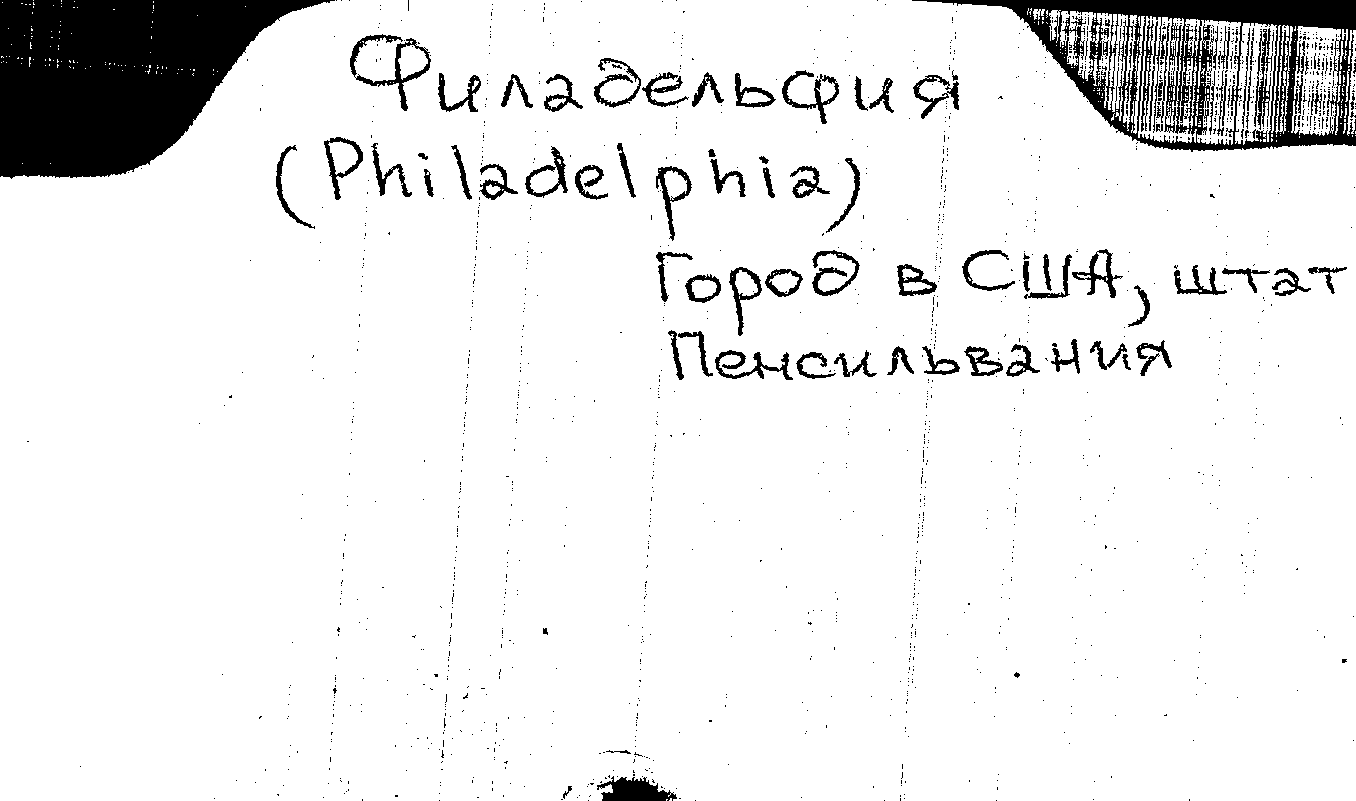 Филадельфия
(Philadelphia)
Город в США, штат
Пенсильвания